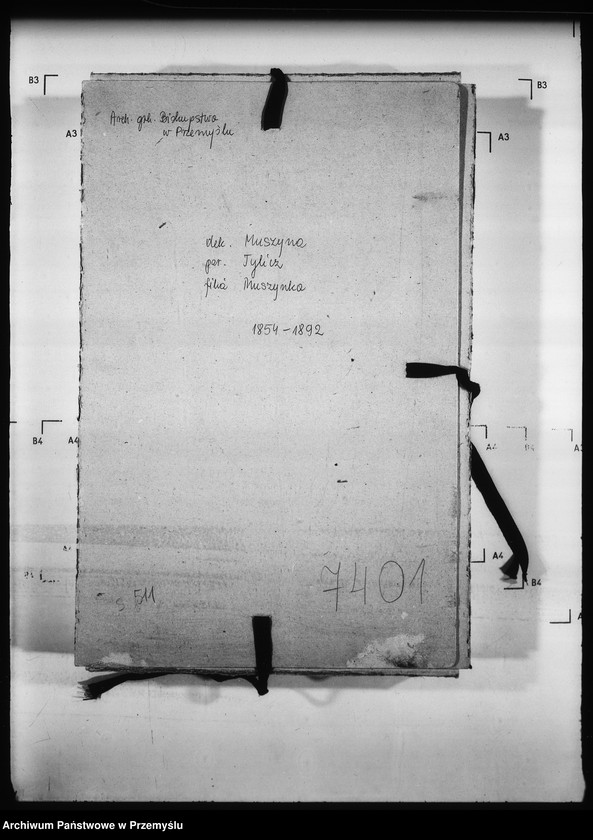 Arch. gk. Biskupstwa
w Przemyślu
dek. Muszyna
par. Tylicz
filia Muszynka
1854-1892
7401
S 511
B3
B3
A3
A3
B4
A4
A4
A4
B4
Archiwum Państwowe w Przemyślu